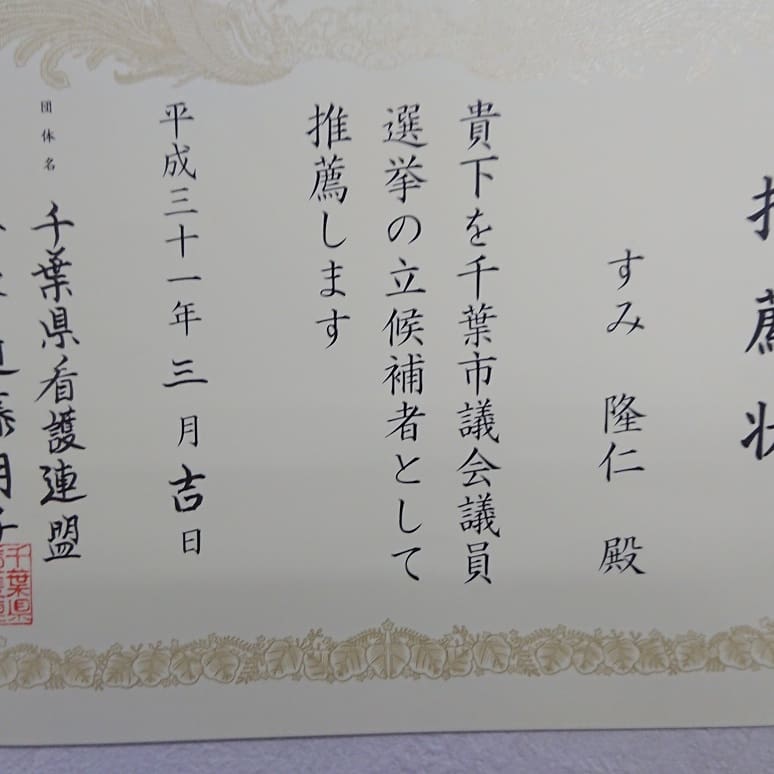 推薦状
すみ 隆仁 殿
貴下を千葉市議会議員
選挙の立候補者として
推薦します
平成三十一年三月吉日
団体名 千葉県看護連盟
千葉県